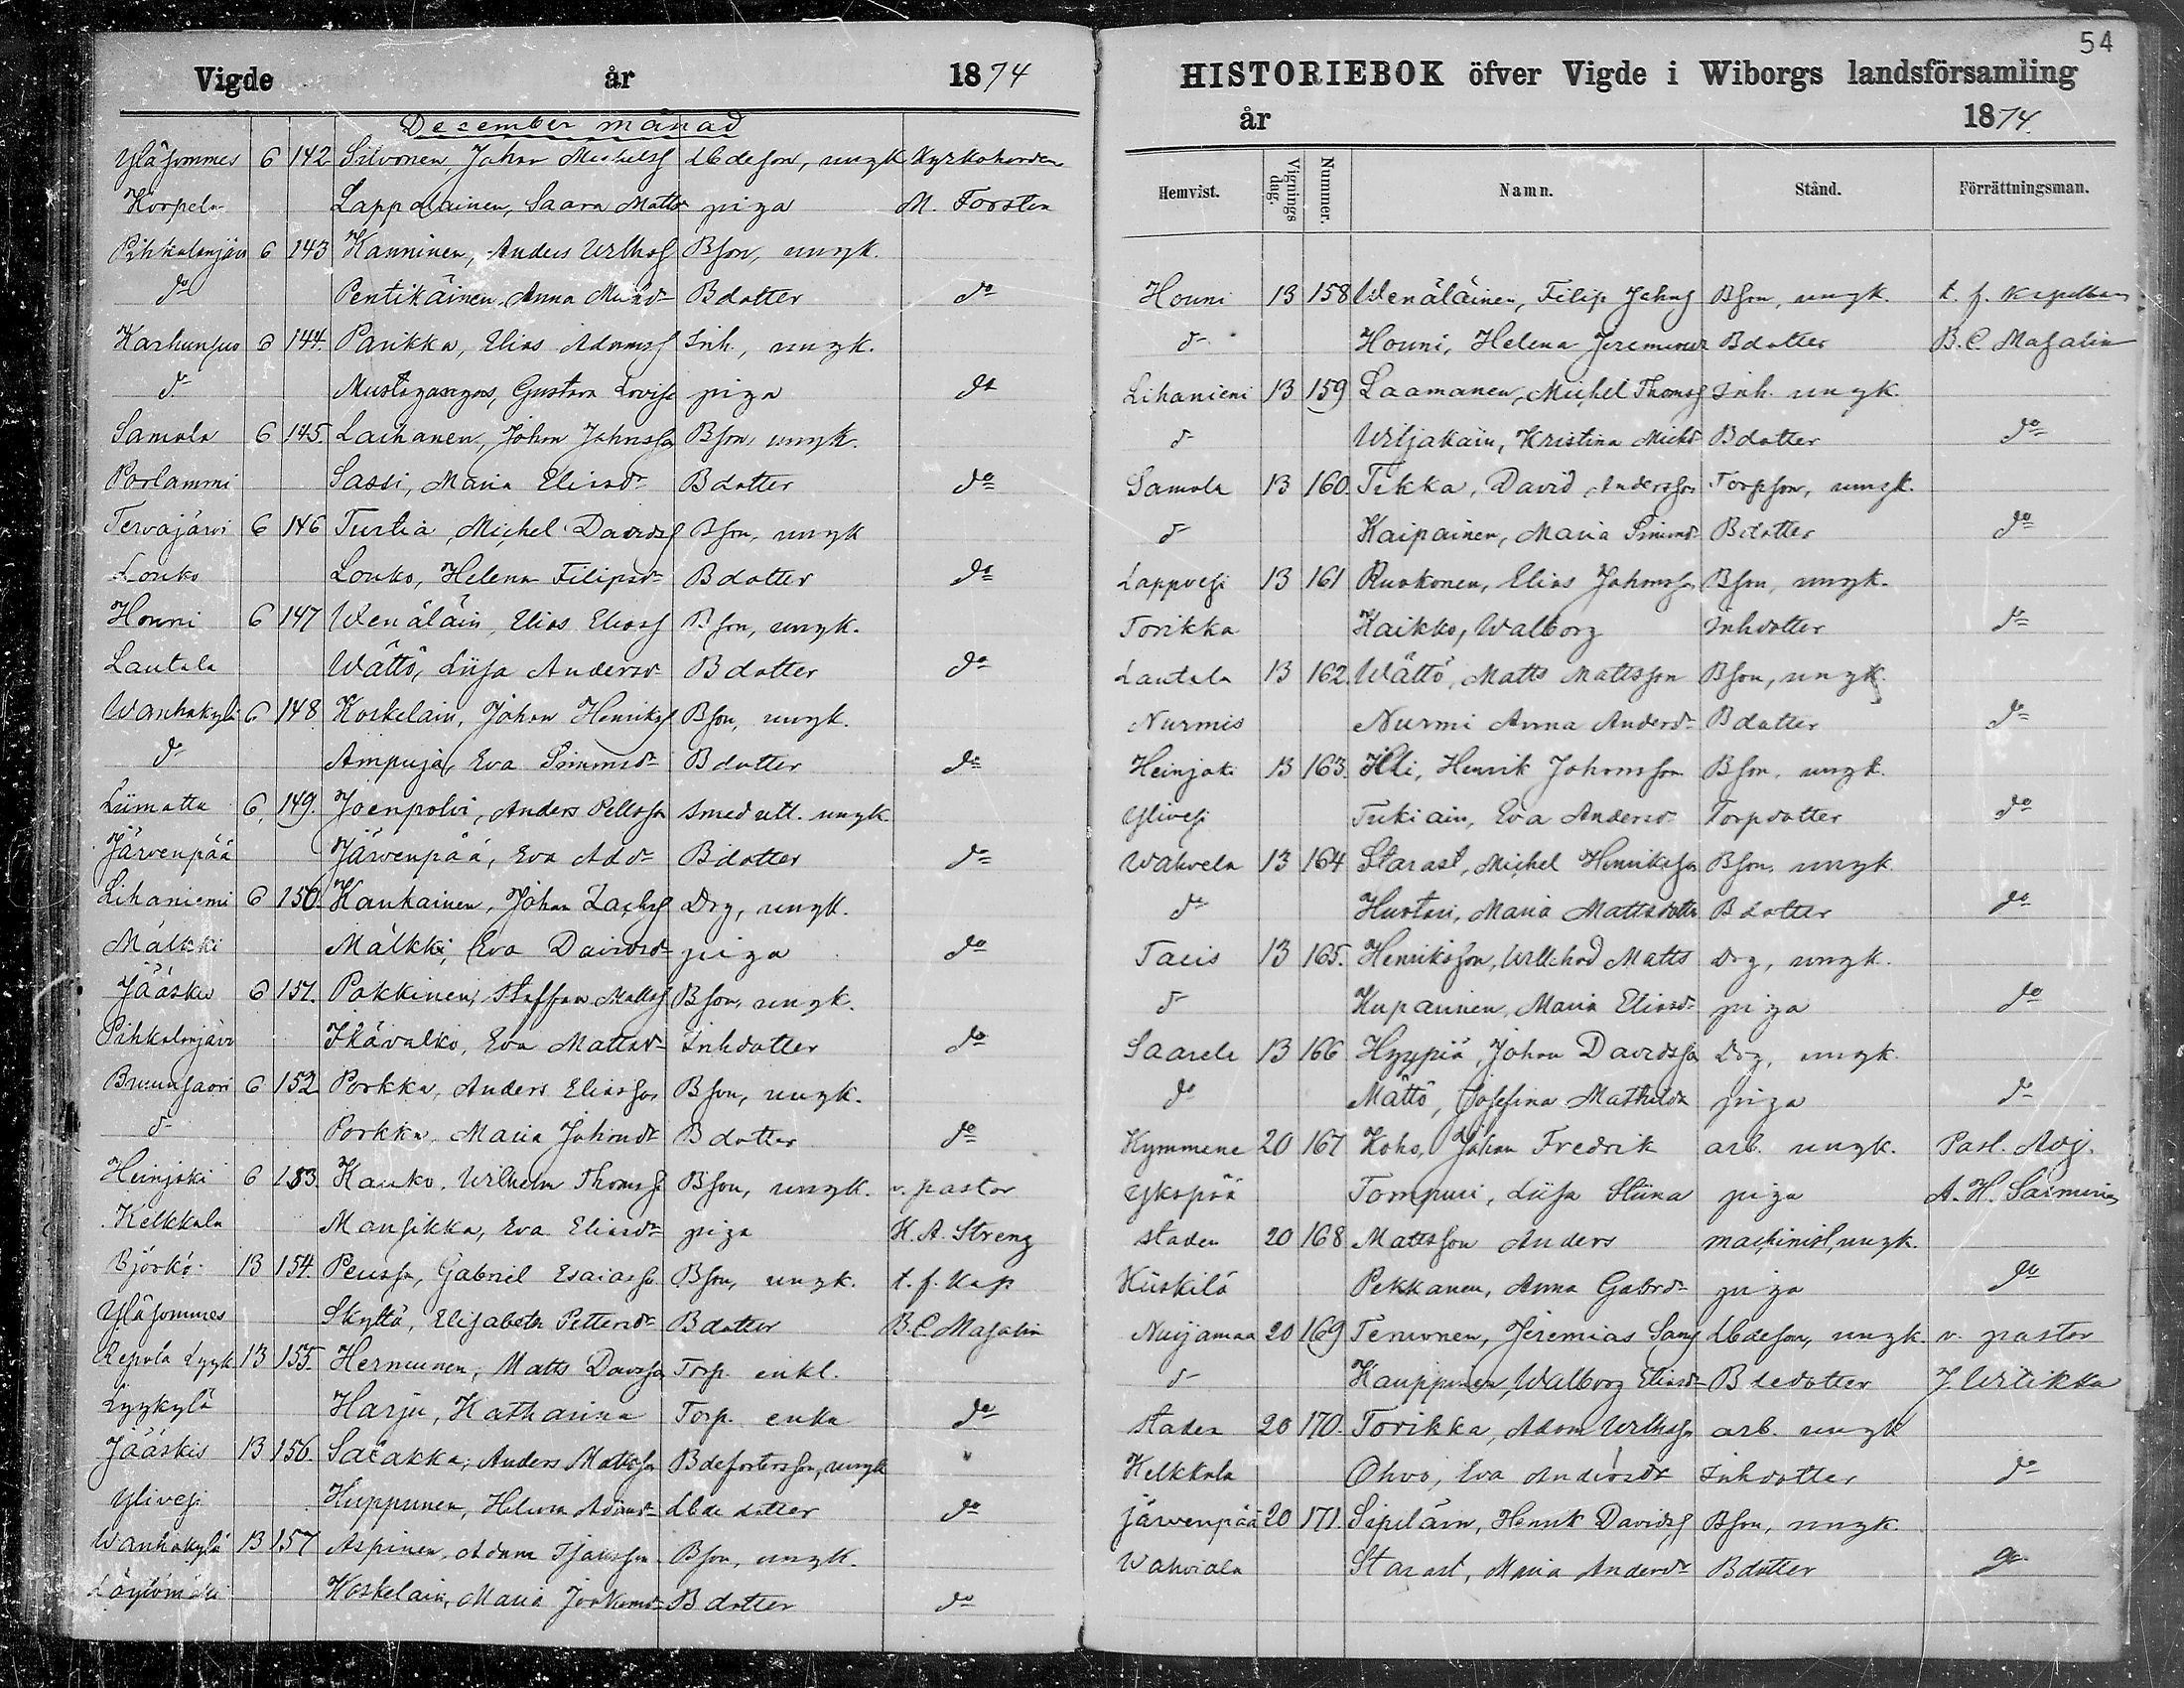 Vigde år 1874
December månad
Yläsommes 6 142 Silvonen, Johan Michelss Lbdeson, ungk Kyrkoherden
Korpela Lappalainen, Saara Mattsdr piga M. Forstén
Pihkalanjärvi 6 143 Kanninen, Anders Wilhss Bson, ungk.
do Pentikäinen, Anna Michsdr Bdotter do
Karhunsuo 6 144. Parikka, Elias Adamss Inh., ungk.
do Gustava Lovisa piga do
Samola 6 145. Laihanen, Johan Johansson Bson, ungk.
Porlammi Sassi, Maria Eliasdr Bdotter do
Tervajärvi 6 146 Turtia, Michel Davidss Bson, ungk
Louko Louko, Helena Filipsdr Bdotter do
Houni 6 147 Wenäläin, Elias Eliass Bson, ungk.
Lautala Wättö, Liisa Andersdr Bdotter do
Wanhakylä 6 148 Koskelain, Johan Henrikss Bson, ungk.
do Ampuja, Eva Simonsdr Bdotter do
Liimatta 6 149. Joenpolvi, Anders Pettss smed utl. ungk.
Järvenpää Järvenpää, Eva Adr Bdotter do
Lihaniemi 6 150. Kaukainen, Johan Zachss Drg, ungk.
Mälkki Mälkki, Eva Davidsdr piga do
Jääskis 6 151. Pakkinen, Staffan Mattss Bson, ungk.
Pihkalanjärvi Ikävalko, Eva Mattsdr Inhdotter do
6 152 Porkka, Anders Eliasson Bson, ungk.
do Porkka, Maria Johansdr Bdotter do
Heinjoki 6 153. Kauko, Wilhelm Thomss Bson, ungk. v. pastor
Kelkkala Mansikka, Eva Eliasdr piga K. A. Streng
Björkö 13 154. Peussa, Gabriel Esaiasson Bson, ungk. t. f. Kap
Yläsommes Skyttä, Elisabeth Pettersdr Bdotter B. C. Masalin
Repola Lyyk 13 155. Hernunen, Matts Davsson Torp. enkl.
Lyykylä Harju, Katharina Torp. enka do
Jääskis 13 156. Anders Mattsson ungk "
Ylivesi Huppunen, Helena Adamsdr Lbde dotter do
Wanhakylä 13 157 Aspinen, Adam Isaksson Bson, ungk.
Löytömäki Koskelain, Maria Joakimsdr Bdotter do
54
HISTORIEBOK öfver Vigde i Wiborgs landsförsamling
år 1874.
Hemvist. Vignings dag. Nummer. Namn. Stånd. Förrättningsman.
Houni 13 158 Wenäläinen, Filip Johss Bson, ungk. t. f. Kapellan
do Houni, Helena Jeremiasdr Bdotter B. C. Masalin
Lihaniemi 13 159 Laamanen, Michel Thomss Inh. ungk.
do Wiljakain, Kristina Michsdr Bdotter do
Samola 13 160. Tikka, David Andersson Torpson, ungk.
do Kaipainen, Maria Simonsdr Bdotter do
Lappvesi 13 161 Ruokonen, Elias Johansson Bson, ungk.
Torikka Kaikko, Walborg Inhdotter do
Lautala 13 162. Wättö, Matts Mattsson Bson, ungk.
Nurmis Nurmi Anna Andersdr Bdotter do
Heinjoki 13 163. Illi, Henrik Johansson Bson, ungk.
Ylivesi Tukiain, Eva Andersdr Torpdotter do
Wahvela 13 164 Starast, Michel Henriksson Bson, ungk.
do Hustari, Maria Mattsdotter Bdotter do
Tacis 13 165. Henriksson, Willehad Matts Drg, ungk.
do Kupariinen, Maria Eliasdr piga do
Saarela 13 166 Hyypiä, Johan Davidsson Drg, ungk.
do Mättö, Josefina Mathilda piga do
Kymmene 20 167 Koho, Johan Fredrik arb. ungk. Past. Adj.
Ykspää Tompuri, Liisa Stiina piga A. H. Saimenius
staden 20 168 Mattsson Anders machinist, ungk.
Kiiskilä Pekkanen, Anna Gabrdr piga do
Nuijamaa 20 169 Terwonen, Jeremias Lbdeson, ungk. v. pastor
do Kauppinen, Walborg Eliasdr Bdedotter J. Witikka
staden 20 170. Torikka, Adam Wilhsson arb. ungk
Kelkkala Ohvo, Eva Andersdr Inhdotter do
Järvenpää 20 171. Sipiläin, Henrik Davidss Bson, ungk.
Wahviala Starast, Maria Andersdr Bdotter do